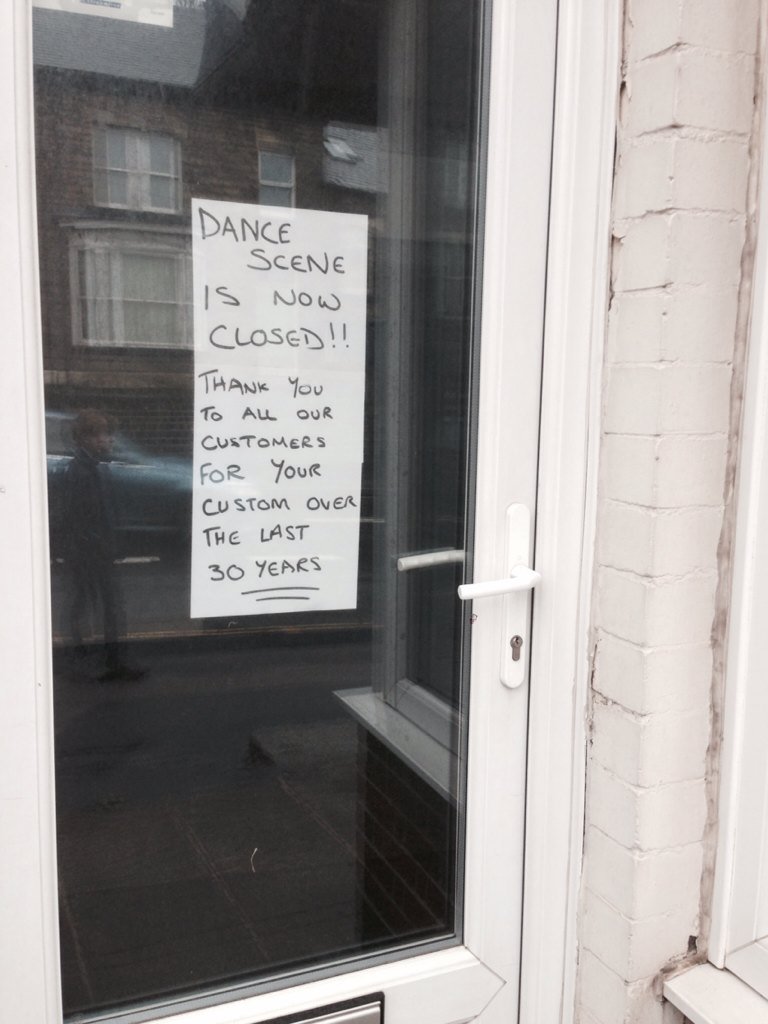 DANCE
SCENE
IS NOW
CLOSED!!
THANK YOU
TO ALL OUR
CUSTOMERS
FOR YOUR
CUSTOM OVER
THE LAST
30 YEARS